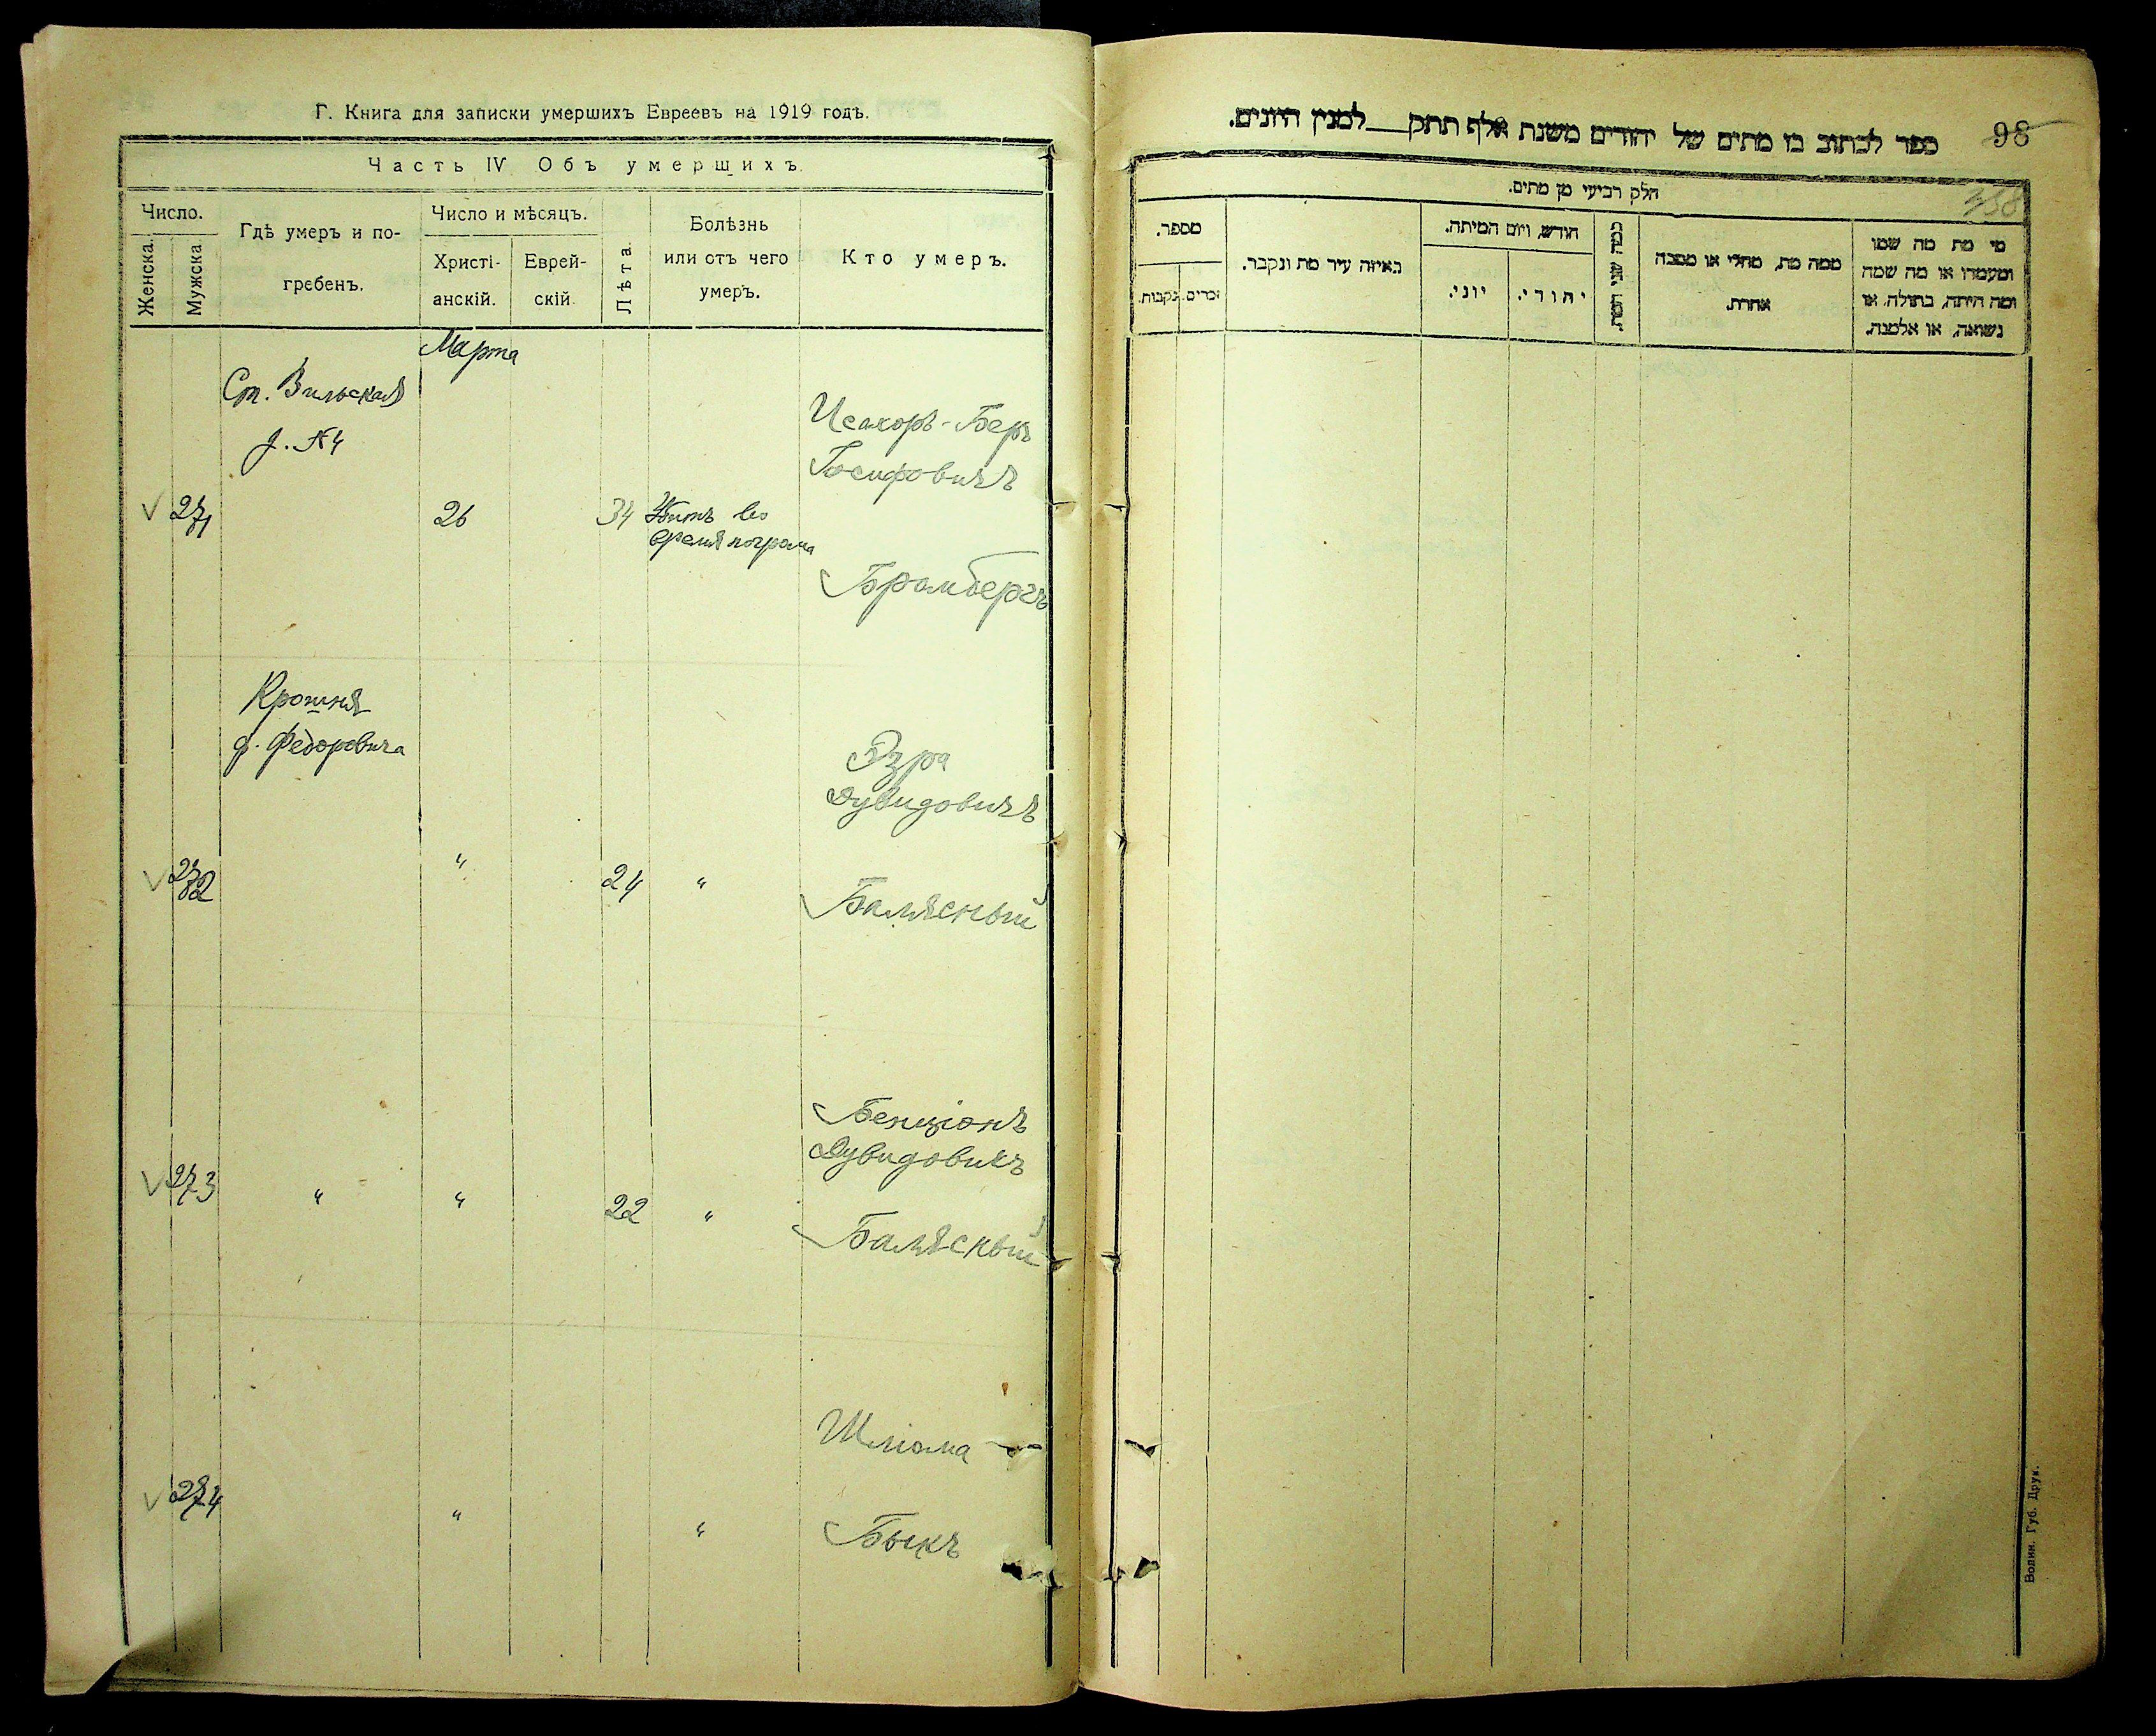 Г. Книга для записки умершихъ Евреевъ на 1919 годъ.
Часть IV Объ умершихъ.
Число.
Женска.
Мужска
Гдѣ умеръ и по-
гребенъ.
Число и мѣсяцъ.
Христі-
анскій.
Еврей-
скій.
Лѣта.
Болѣзнь
или отъ чего
умеръ.
Кто умеръ.
Марта
Ст. Вильская
д. №4
271
26
34
Убитъ во
время погрома
Исахоръ-Беръ
Іосифовичъ
Бромбергъ
Крошня
ф. Федоровича
272
"
24
"
Эзра
Дувидовичъ
Балясный
273
"
"
22
"
Бенціонъ
Дувидовичъ
Балясный
274
"
"
Шліома
Быкъ
98
ספר לכתוב בו מתים של יהודים משנת אלף תתק למנין היונים.
חלק רביעי מן מתים.
מספר.
זכרים.
נקבות.
באיזה עיר מת ונקבר.
חודש, ויום המיתה.
יוני.
יהודי.
כמה שני המת.
ממה מת, מחלי או מסבה
אחרת.
מי מת מה שמו
ומעמדו או מה שמה
ומה היתה, בתולה, או
נשואה, או אלמנה.
Волин. Губ. Друк.